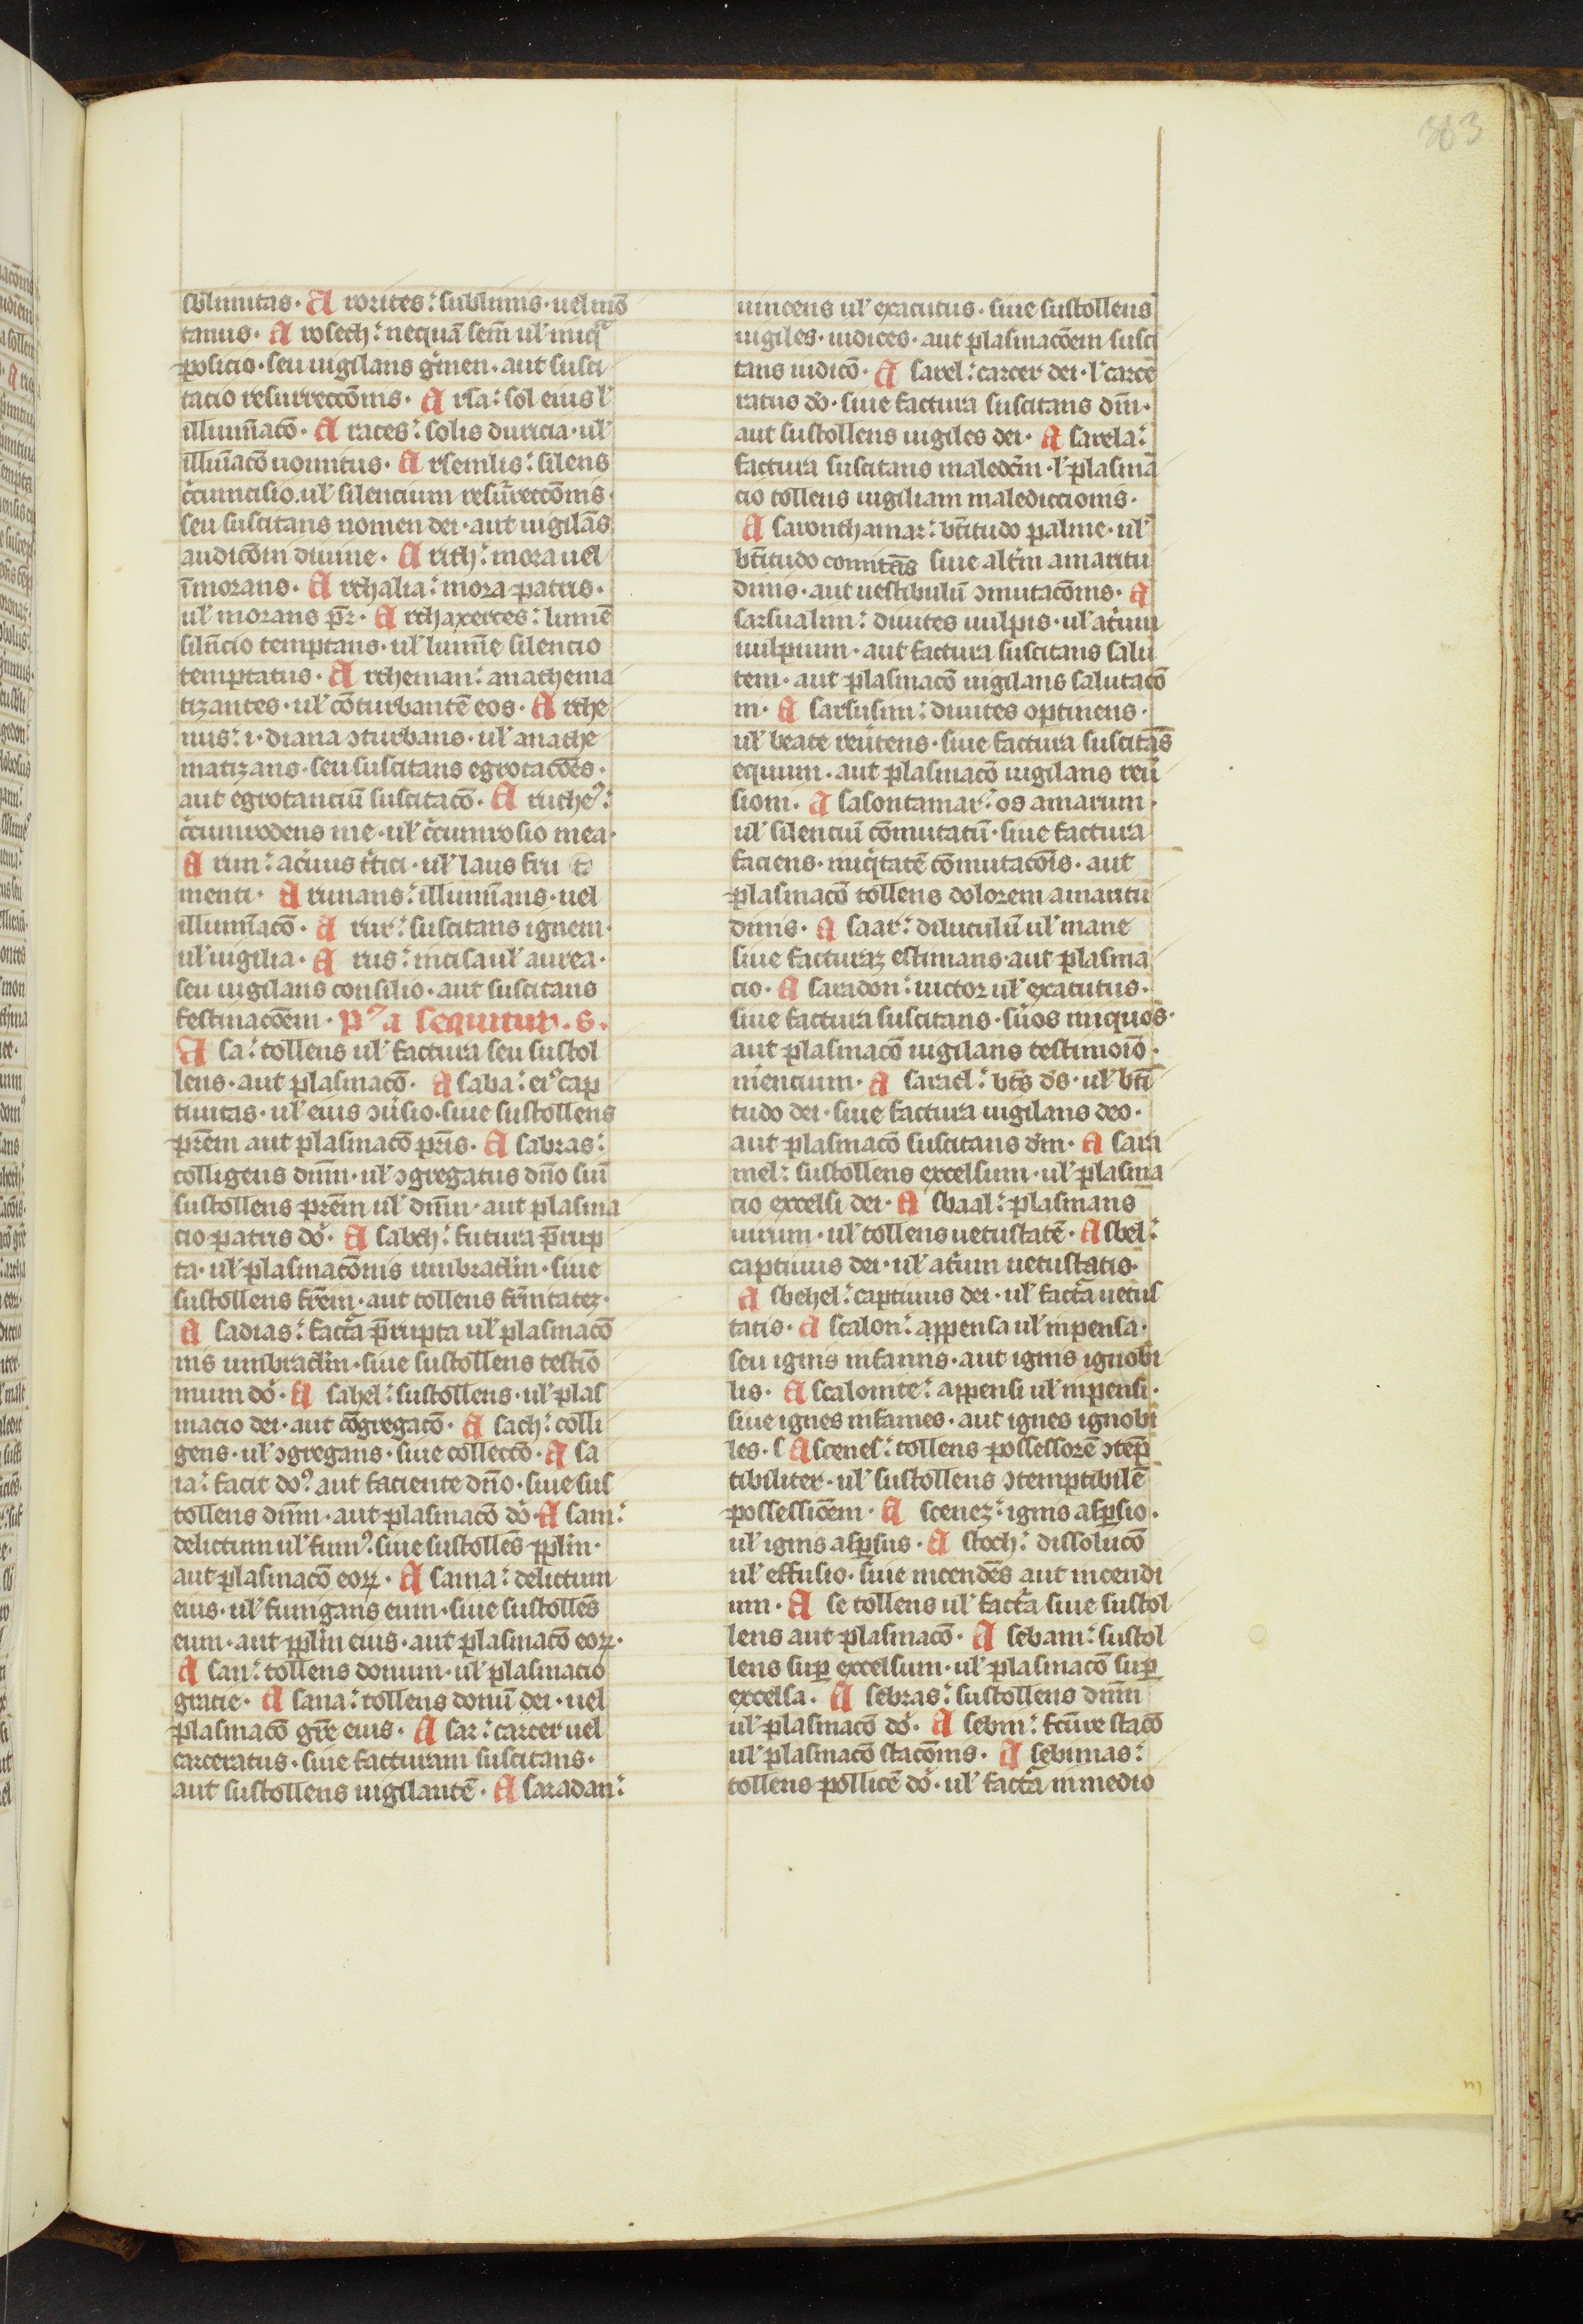 363
sblimitas. A rorites: sublimis. uel mō
tanus. A rosech: nequā sem̄ ul' iniq
posicio. seu uigilans g̃men. aut susci
tacio resurreccōnis. A rsa: sol eius l'
illumīacō. A races: solis duricia. ul'
illuīacō uomitus. A rsemlis: silens
c̃cumcisio. ul' silencium resũreccōnis.
seu suscitans nomen dei. aut uigilās
audicōm diuine. A rith: mora uel
īmorans. A rthalia: mora patris.
ul' morans pr̄. A rthaxerces: lumē
silñcio temptans. ul' lumīe silencio
temptatus. A rtheman: anathema
tizantes. ul' cōturbantē eos. A rthe
nus: i. diana ɔturbans. ul' anathe
matizans. seu suscitans egrotacōes.
aut egrotanciū suscitacō. A ruche:
c̃cumrodens me. ul' c̃cumrosio mea.
A rum: ac̃uus t̃tici. ul' laus fru
menti. A runans: illumīans. uel
illumīacō. A rur: suscitans ignem.
ul' uigilia. A rus: incisa ul' aurea.
seu uigilans consilio. aut suscitans
festinacōem. p9 a sequitur. s.
A sa: tollens ul' factura seu sustol
lens. aut plasmacō. A saba: ei9 cap
tiuitas. ul' eius ɔũsio. siue sustollens
prēm aut plasmacō pr̄is. A sabras:
colligens dnm̄. ul' ɔgregatus dn̄o siū
sustollens prēm ul' dnm̄. aut plasma
cio patris dō. A sabeh: futura p̄rup
ta. ul' plasmacōnis umbraclm̄. siue
sustollens fr̄em. aut tollens fr̄nitatez.
A sadias: fact̃a p̄rupta ul' plasmacō
nis umbraclm̄. siue sustollens testiō
nium dō. A sahel: sustollens. ul' plas
macio dei. aut cōgregacō. A sach: colli
gens. ul' ɔgregans. siue collectō. A sa
ia: facit do9 aut faciente dn̄o. siue sus
tollens dnm̄. aut plasmacō dō. A sam:
delictum ul' fum9. siue sustollēs pplm̄.
aut plasmacō eoꝝ. A sama: delictum
eius. ul' fumigans eum. siue sustollēs
eum. aut pplm̄ eius. aut plasmacō eoꝝ.
A san: tollens donum. ul' plasmacio
gracie. A sana: tollens donū dei. uel
plasmacō gr̄e eius. A sar: carcer uel
carceratus. siue facturam suscitans.
aut sustollens uigilantē. A saradan:
uincens ul' exacutus. siue sustollens
uigiles. iudices. aut plasmacōem susci
tans iudicō. A sarel: carcer dei. l' carce
ratus dō. siue factura suscitans dm̄.
aut sustollens uigiles dei. A sarela:
factura suscitans maledc̃m. l' plasma
cio tollens uigiliam malediccionis.
A saronthamar: bt̄itudo palme. ul'
bt̄itudo siue alt̃m amaritu
dinis. aut uestibulū ɔmutacōnis. A
sarsualim: diuites uulpis. ul' at̃ium
uulpium. aut factura suscitans salu
tem. aut plasmacō uigilans salutacō
m. A sarsusim: diuites optinens.
ul' beate reũtens. siue factura suscitās
equum. aut plasmacō uigilans reũ
siom. A sasontamar: os amarum.
ul' silenciū cōmutatū. siue factura
faciens. iniq̃tatē cōmutacōis. aut
plasmacō tollens dolorem amaritu
dinis. A saar: diluculū ul' mane
siue facturaz estimans. aut plasma
cio. A saradon: uictor ul' exacutus.
siue factura suscitans. sũos iniquos.
aut plasmacō uigilans testimoīō.
niencium. A sarael: bt̄s ds̄. ul' bt̄i
tudo dei. siue factura uigilans deo.
aut plasmacō suscitans dm̄. A sara
mel: sustollens excelsum. ul' plasma
cio excelsi dei. A sbaal: plasmans
uirum. ul' tollens uetustatē. A sbel:
captiuus dei. ul' at̃ium uetustatis.
A sbehel: captiuus dei. ul' fact̃a uetus
tatis. A scalon: appensa ul' inpensa.
seu ignis infamis. aut ignis ignobi
lis. A scalonite: appensi ul' inpensi.
siue ignes infames. aut ignes ignobi
les. s A scenes: tollens possessorē ɔtep̄
tibiliter. ul' sustollens ɔtemptibilē
possessiōem. A scenez: ignis asp̱sio.
ul' ignis asp̱sus. A stoch: dissolucō
ul' effusio. siue incendēs aut incendi
um. A se tollens ul' fact̃a siue sustol
lens aut plasmacō. A sebam: sustol
lens sup̱ excelsum. ul' plasmacō sup̱
excelsa. A sebras: sustollens dnm̄
ul' plasmacō dō. A sebm: stacō
ul' plasmacō stacōnis. A sebunas:
tollens pollicē dō. ul' fact̃a in medio